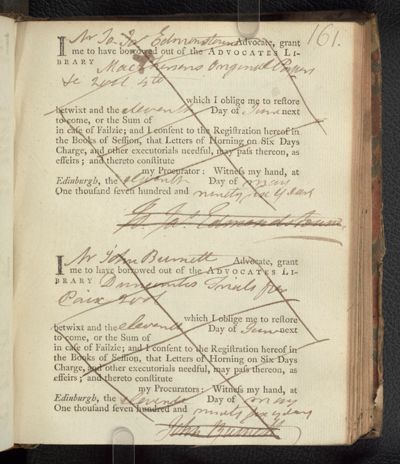 161.
I Mr Ja. Jo. Edmonstoune Advocate, grant
me to have borrowed out of the ADVOCATES LI-
BRARY Macphersons Original Papers
2 vol 4to
which I oblige me to reſtore
betwixt and the eleventh Day of June next
to come, or the Sum of
in caſe of Failzie; and I conſent to the Regiſtration hereof in
the Books of Seſſion, that Letters of Horning on Six Days
Charge, and other executorials needful, may paſs thereon, as
effeirs; and thereto conſtitute
my Procurator: Witneſs my hand, at
Edinburgh, the eleventh Day of may
One thouſand ſeven hundred and ninety six years
Ja. Edmondstoune
I Mr John Burnett Advocate, grant
me to have borrowed out of the ADVOCATES LI-
BRARY Trials for
2 vol
which I oblige me to reſtore
betwixt and the eleventh Day of June next
to come, or the Sum of
in caſe of Failzie; and I conſent to the Regiſtration hereof in
the Books of Seſſion, that Letters of Horning on Six Days
Charge, and other executorials needful, may paſs thereon, as
effeirs; and thereto conſtitute
my Procurators: Witneſs my hand, at
Edinburgh, the eleventh Day of may
One thouſand ſeven hundred and ninety six years
John Burnett